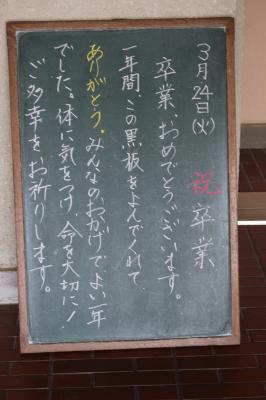 3月24日(火) 祝卒業
卒業、おめでとうございます。
一年間、この黒板をよんでくれて
ありがとう。みんなのおかげでよい一年
でした。体に気をつけ、命を大切に!
ご多幸をお祈りします。